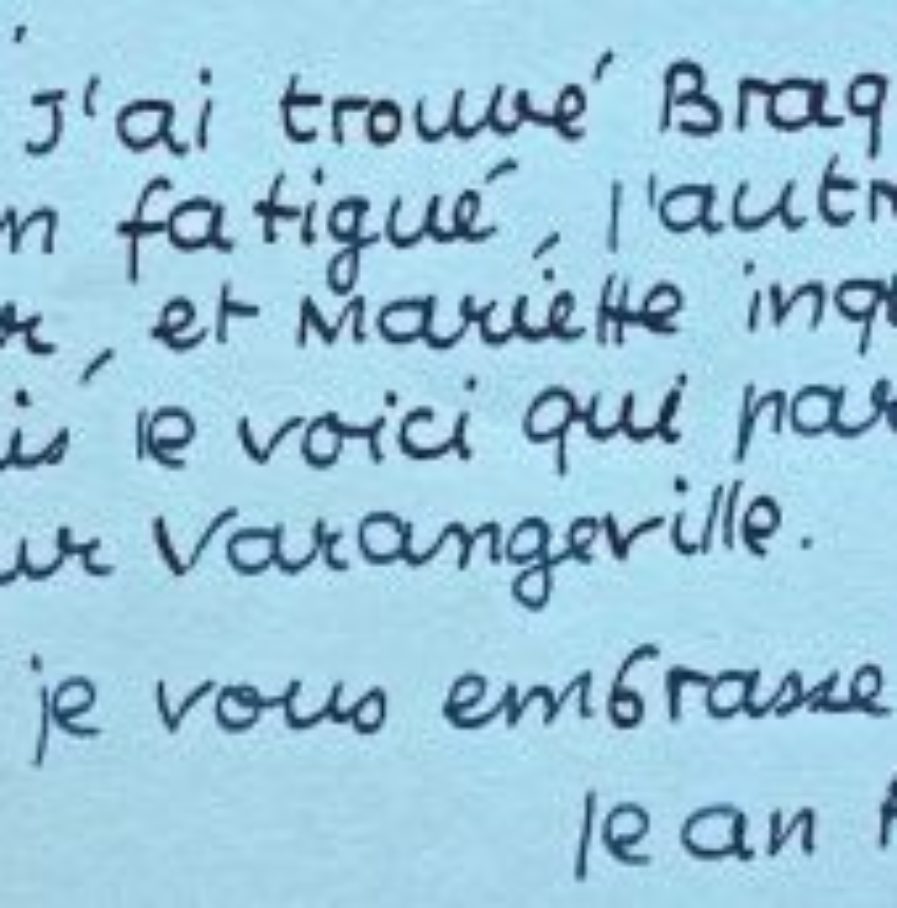 J'ai trouvé Braq
n fatigué, l'autr
r, et Mariette inq
is le voici qui par
ur Varangeville.
je vous embrasse
jean